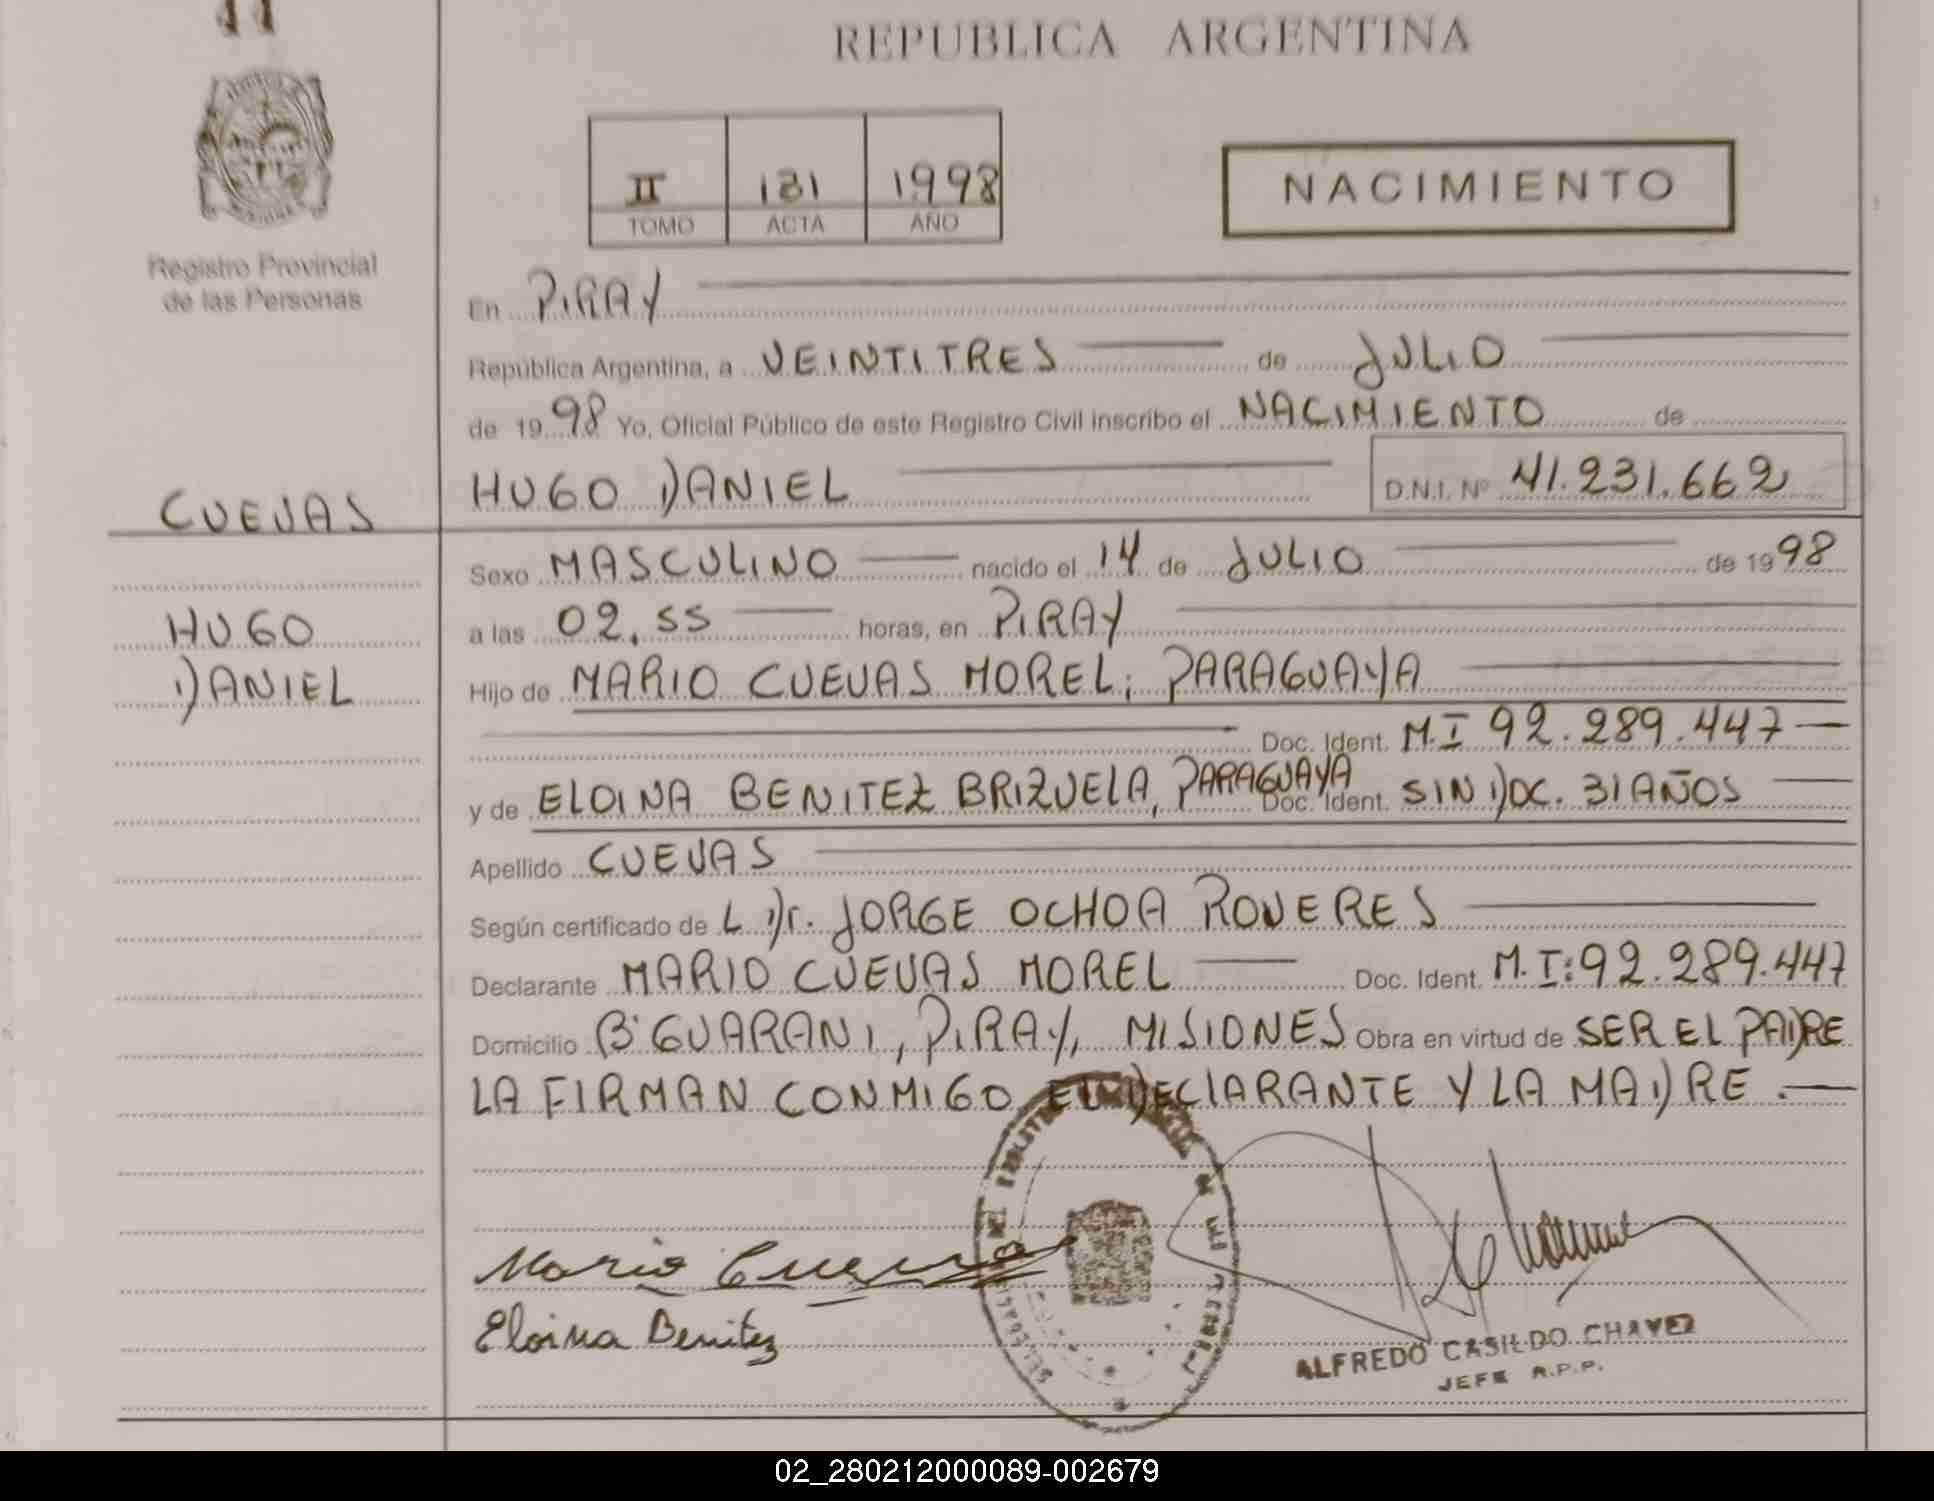 REPUBLICA ARGENTINA
II 181 1998
TOMO ACTA AÑO
NACIMIENTO
Registro Provincial
de las Personas
En PIRAY
República Argentina, a VEINTITRES de JULIO
de 1998 Yo, Oficial Público de este Registro Civil inscribo el NACIMIENTO de
HUGO DANIEL D.N.I. Nº 41.231.662
CUEVAS
HUGO
DANIEL
Sexo MASCULINO nacido el 14 de JULIO de 1998
a las 02.55 horas, en PIRAY
Hijo de MARIO CUEVAS MOREL; PARAGUAYA
Doc. Ident. M.I 92.289.447
y de ELOINA BENITEZ BRIZUELA, PARAGUAYA Doc. Ident. SIN DOC. 31 AÑOS
Apellido CUEVAS
Según certificado de L Dr. JORGE OCHOA ROVERES
Declarante MARIO CUEVAS MOREL Doc. Ident. M.I:92.289.447
Domicilio Bº GUARANI, PIRAY, MISIONES Obra en virtud de SER EL PADRE
LA FIRMAN CONMIGO EL DECLARANTE Y LA MADRE.
Mario Cuevas
Eloina Benitez
ALFREDO CASILDO CHAVEZ
JEFE R.P.P.
02_280212000089-002679